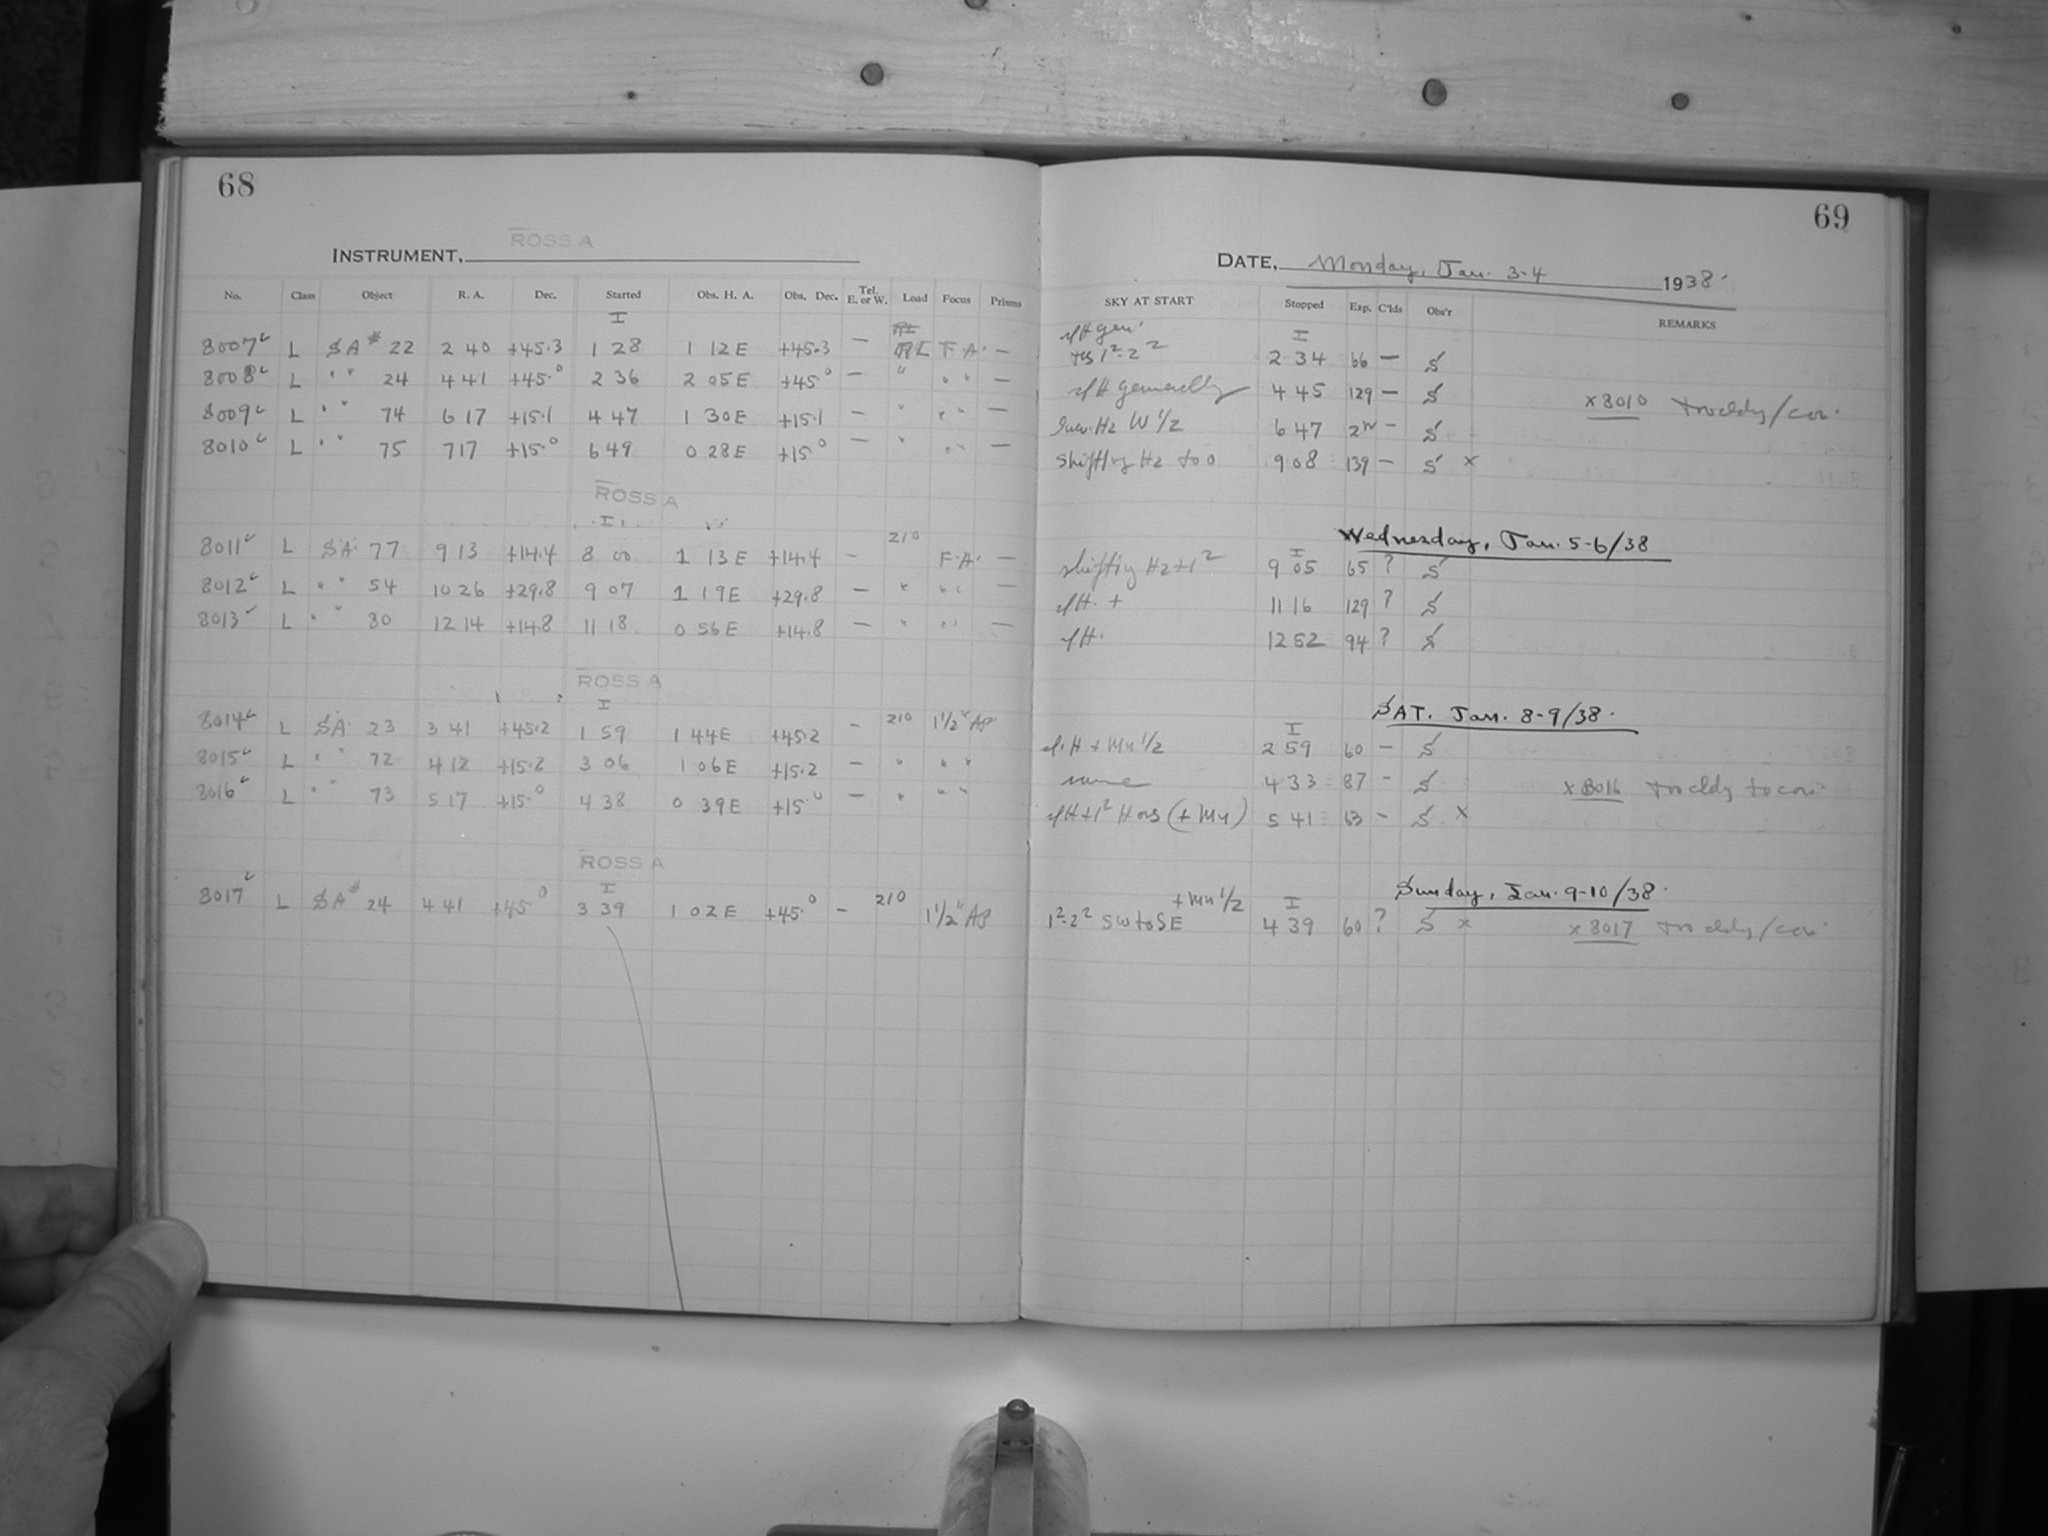 68
ROSS A
INSTRUMENT,
No. Class Object R. A. Dec. Started Obs. H. A. Obs. Dec. Tel. E. or W. Load Focus Prisms
I
8007 L SA # 22 2 40 +45.3 1 28 1 12 E +45.3 — F A. —
8008 L " " 24 4 41 +45.0 2 36 2 05 E +45.0 — " " " —
8009 L " " 74 6 17 +15.1 4 47 1 30 E +15.1 — " " " —
8010 L " " 75 7 17 +15.0 6 49 0 28 E +15.0 — " " " —
ROSS A
I
8011 L SA. 77 9 13 +14.4 8 00 1 13 E +14.4 — 210 F.A. —
8012 L " " 54 10 26 +29.8 9 07 1 19 E +29.8 — " " " —
8013 L " " 80 12 14 +14.8 11 18 0 56 E +14.8 — " " " —
ROSS A
I
8014 L SA. 23 3 41 +45.2 1 59 1 44 E +45.2 — 210 1 1/2" Ap
8015 L " " 72 4 12 +15.2 3 06 1 06 E +15.2 — " " "
8016 L " " 73 5 17 +15.0 4 38 0 39 E +15.0 — " " "
ROSS A
I
8017 L SA # 24 4 41 +45.0 3 39 1 02 E +45.0 — 210 1 1/2" Ap
69
DATE, Monday, Jan. 3-4 1938.
SKY AT START Stopped Exp. C'lds Obs'r REMARKS
I
1²-2² 2 34 66 — S
generally 4 45 129 — S
x 8010
Hz W 1/2 6 47 — S
shifting Hz to 0 9 08 139 — S x
Wednesday, Jan. 5-6/38
I
shifting Hz + 1² 9 05 65 ? S
11 16 129 ? S
12 52 94 ? S
SAT. Jan. 8-9/38.
I
+ Mn 1/2 2 59 60 — S
same 4 33 87 — S x 8016
5 41 63 — S x
Sunday, Jan. 9-10/38.
+ Mn 1/2 I
1²-2² SW to SE 4 39 60 ? S x x 8017